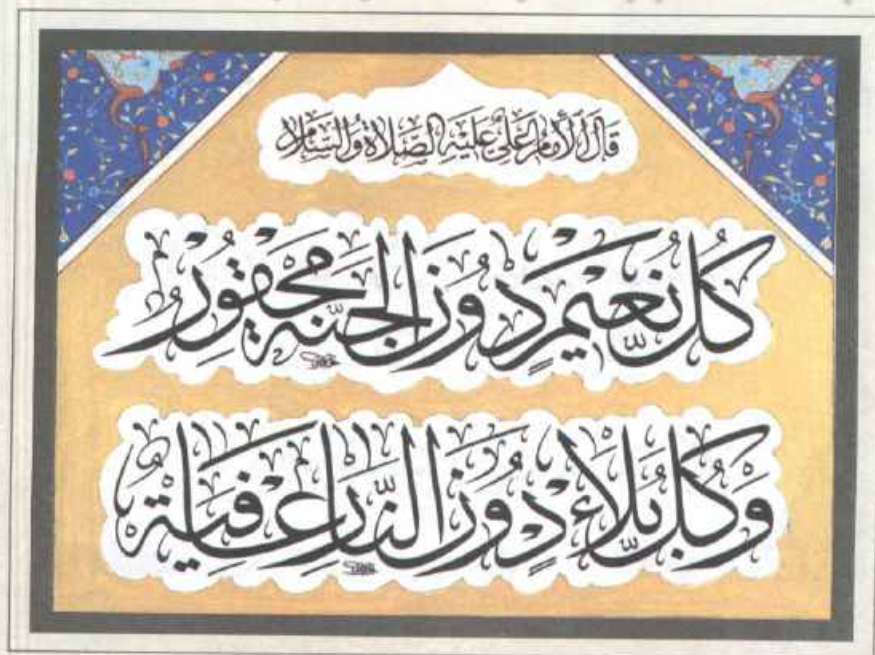 قَالَ الْأِمَامُ عَلِيٌّ عَلَيْهِ الصَّلَاةُ وَالسَّلَامُ
كُلُّ نَعِيمٍ دُونَ الجَنَّةِ مَحْقُورٌ
وَكُلُّ بَلَاءٍ دُونَ النَّارِ عَافِيَةٌ